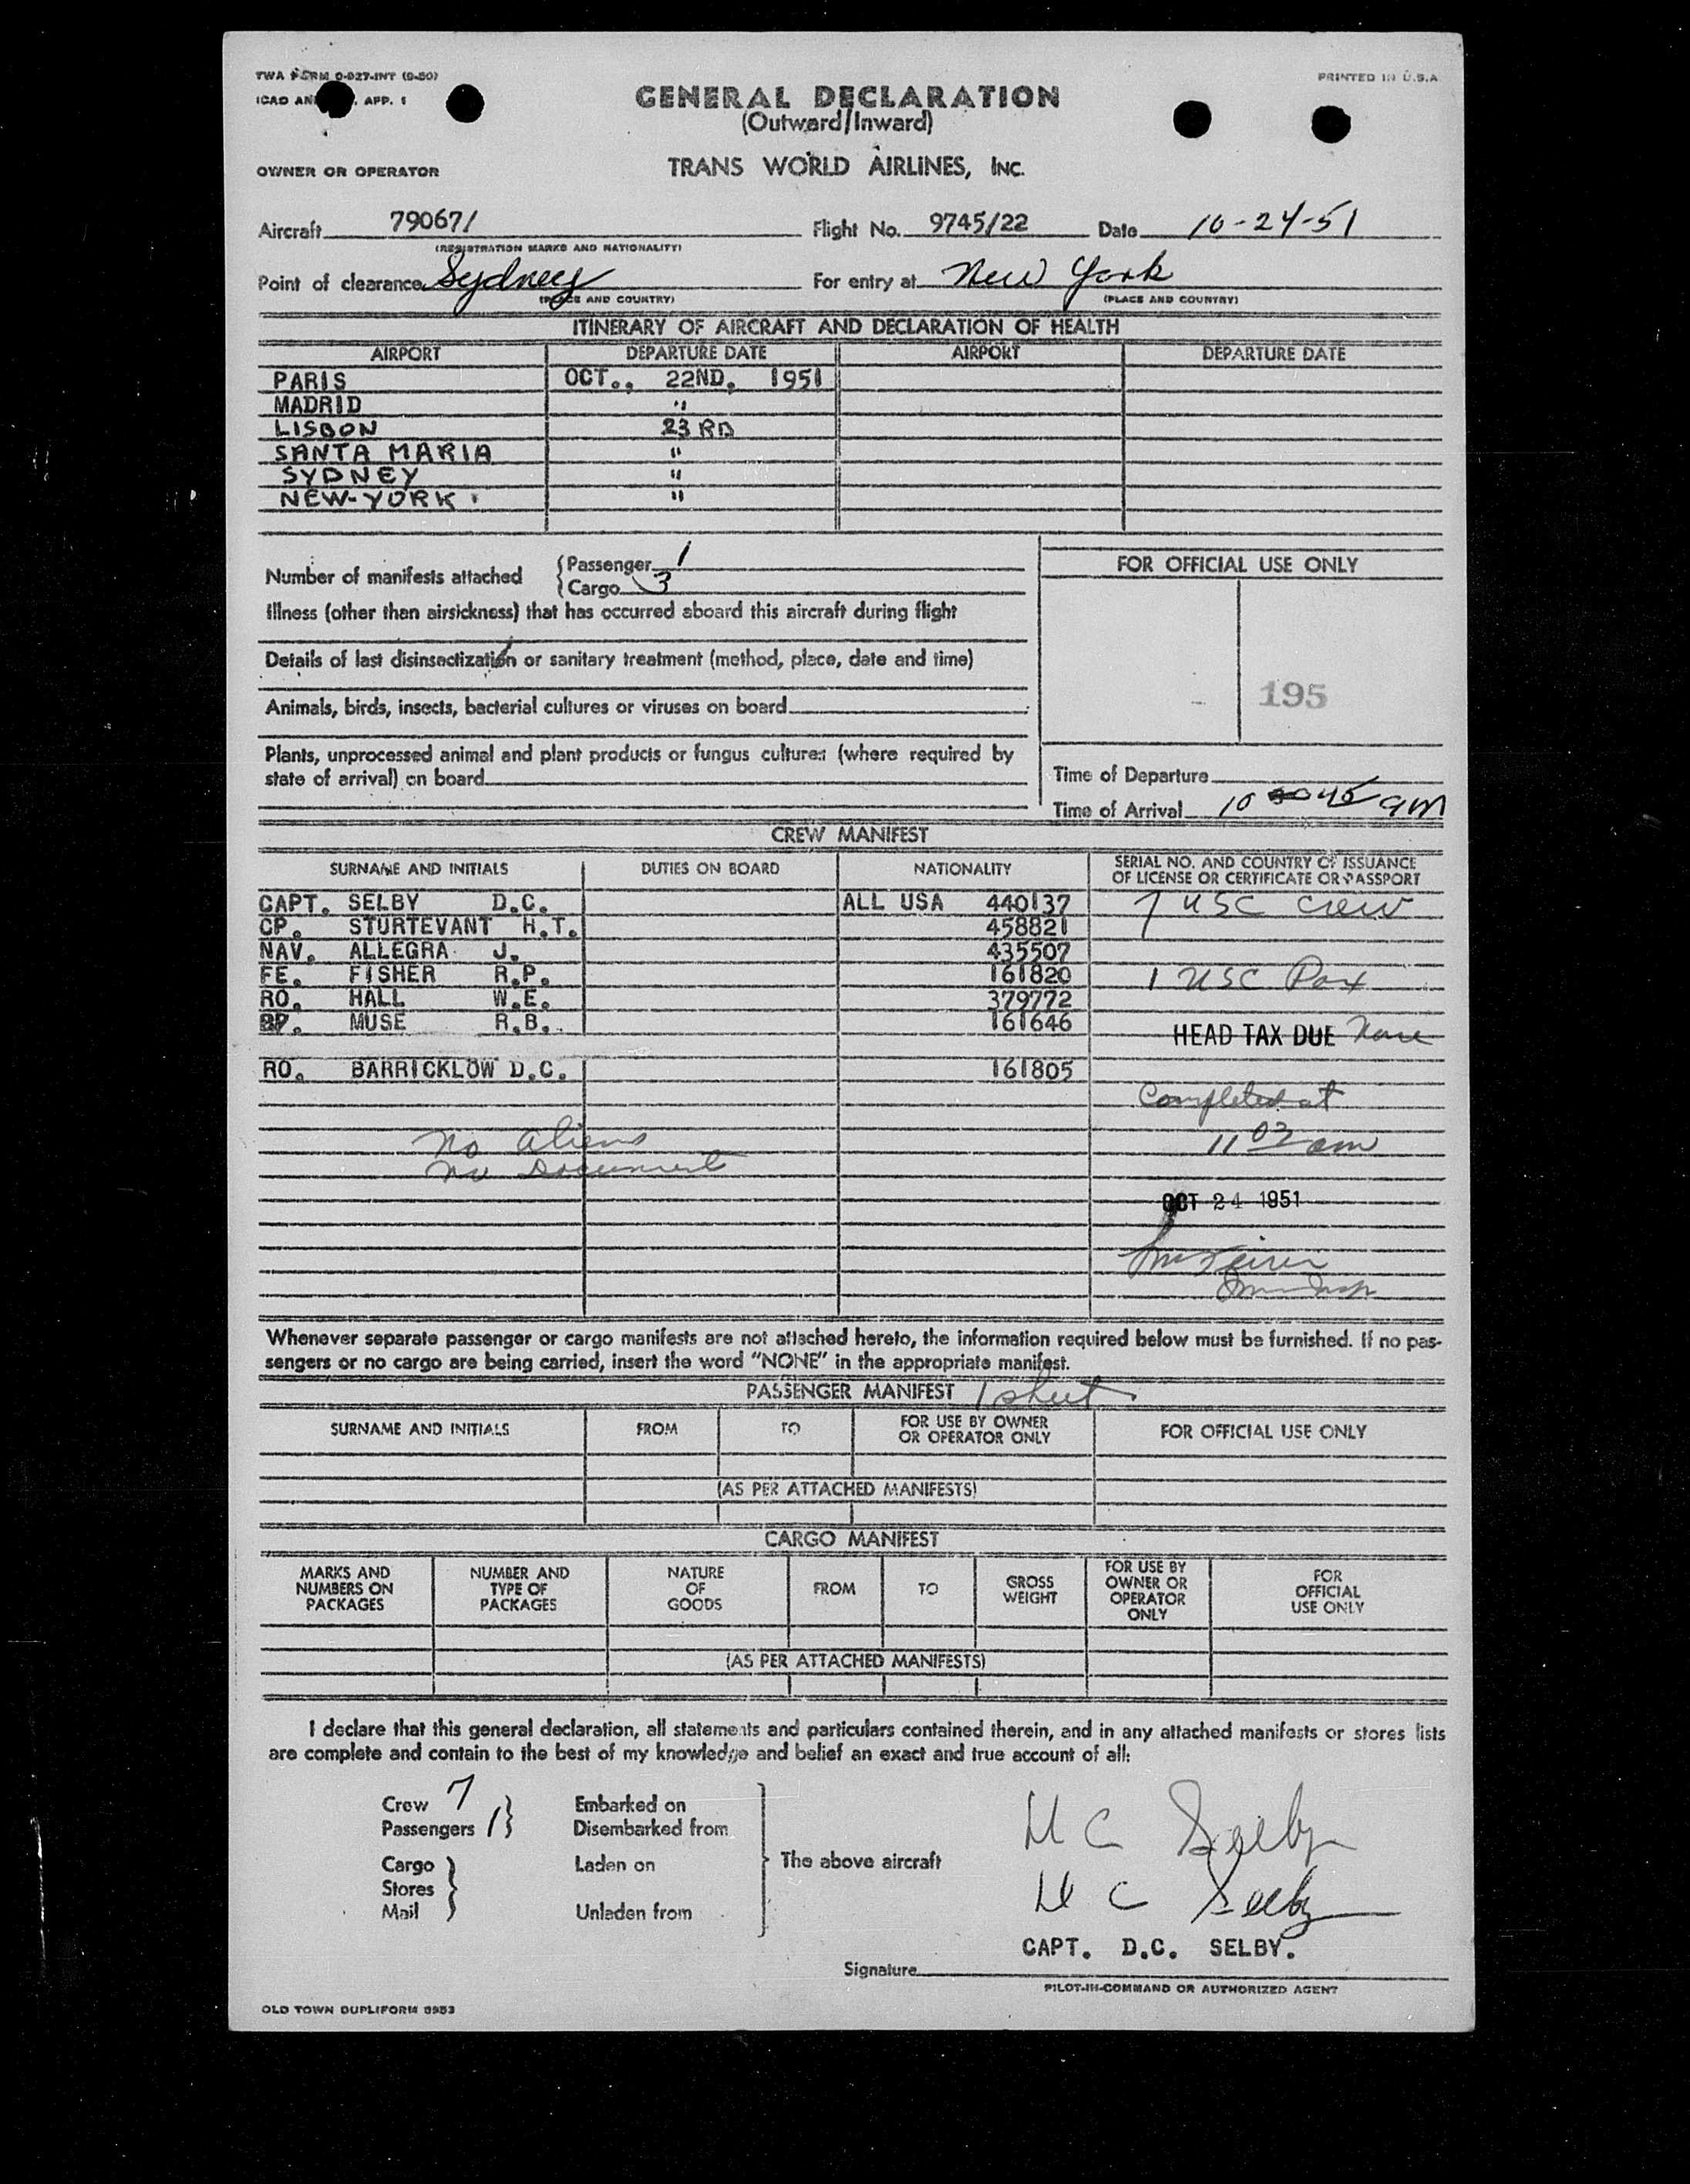 TWA FORM 0-927-INT (9-50)
PRINTED IN U.S.A.
ICAO APP. 1
GENERAL DECLARATION
(Outward/Inward)
OWNER OR OPERATOR
TRANS WORLD AIRLINES, INC.
Aircraft 79067/ Flight No. 9745/22 Date 10-24-51
(REGISTRATION MARKS AND NATIONALITY)
Point of clearance Sydney For entry at New York
(PLACE AND COUNTRY) (PLACE AND COUNTRY)
ITINERARY OF AIRCRAFT AND DECLARATION OF HEALTH
AIRPORT DEPARTURE DATE AIRPORT DEPARTURE DATE
PARIS OCT., 22ND, 1951
MADRID "
LISBON 23 RD
SANTA MARIA "
SYDNEY "
NEW-YORK "
Number of manifests attached { Passenger 1
{ Cargo 3
FOR OFFICIAL USE ONLY
Illness (other than airsickness) that has occurred aboard this aircraft during flight
Details of last disinsectization or sanitary treatment (method, place, date and time)
195
Animals, birds, insects, bacterial cultures or viruses on board
Plants, unprocessed animal and plant products or fungus cultures (where required by
state of arrival) on board
Time of Departure
Time of Arrival 10 45 am
CREW MANIFEST
SURNAME AND INITIALS DUTIES ON BOARD NATIONALITY SERIAL NO. AND COUNTRY OF ISSUANCE
OF LICENSE OR CERTIFICATE OR PASSPORT
CAPT. SELBY D.C. ALL USA 440137 7 USC crew
CP. STURTEVANT H.T. 458821
NAV. ALLEGRA J. 435507
FE. FISHER R.P. 161820 1 USC Pax
RO. HALL W.E. 379772
MUSE R.B. 161646 HEAD TAX DUE None
RO. BARRICKLOW D.C. 161805
Completed at
No aliens 11 03 am
No Document
OCT 24 1951
Whenever separate passenger or cargo manifests are not attached hereto, the information required below must be furnished. If no pas-
sengers or no cargo are being carried, insert the word "NONE" in the appropriate manifest.
PASSENGER MANIFEST 1 sheet
SURNAME AND INITIALS FROM TO FOR USE BY OWNER OR OPERATOR ONLY FOR OFFICIAL USE ONLY
(AS PER ATTACHED MANIFESTS)
CARGO MANIFEST
MARKS AND NUMBERS ON PACKAGES NUMBER AND TYPE OF PACKAGES NATURE OF GOODS FROM TO GROSS WEIGHT FOR USE BY OWNER OR OPERATOR ONLY FOR OFFICIAL USE ONLY
(AS PER ATTACHED MANIFESTS)
I declare that this general declaration, all statements and particulars contained therein, and in any attached manifests or stores lists
are complete and contain to the best of my knowledge and belief an exact and true account of all:
Crew 7 Embarked on
Passengers 1 Disembarked from
Cargo Laden on The above aircraft
Stores
Mail Unladen from
D C Selby
D C Selby
CAPT. D.C. SELBY.
Signature
PILOT-IN-COMMAND OR AUTHORIZED AGENT
OLD TOWN DUPLIFORM 8953